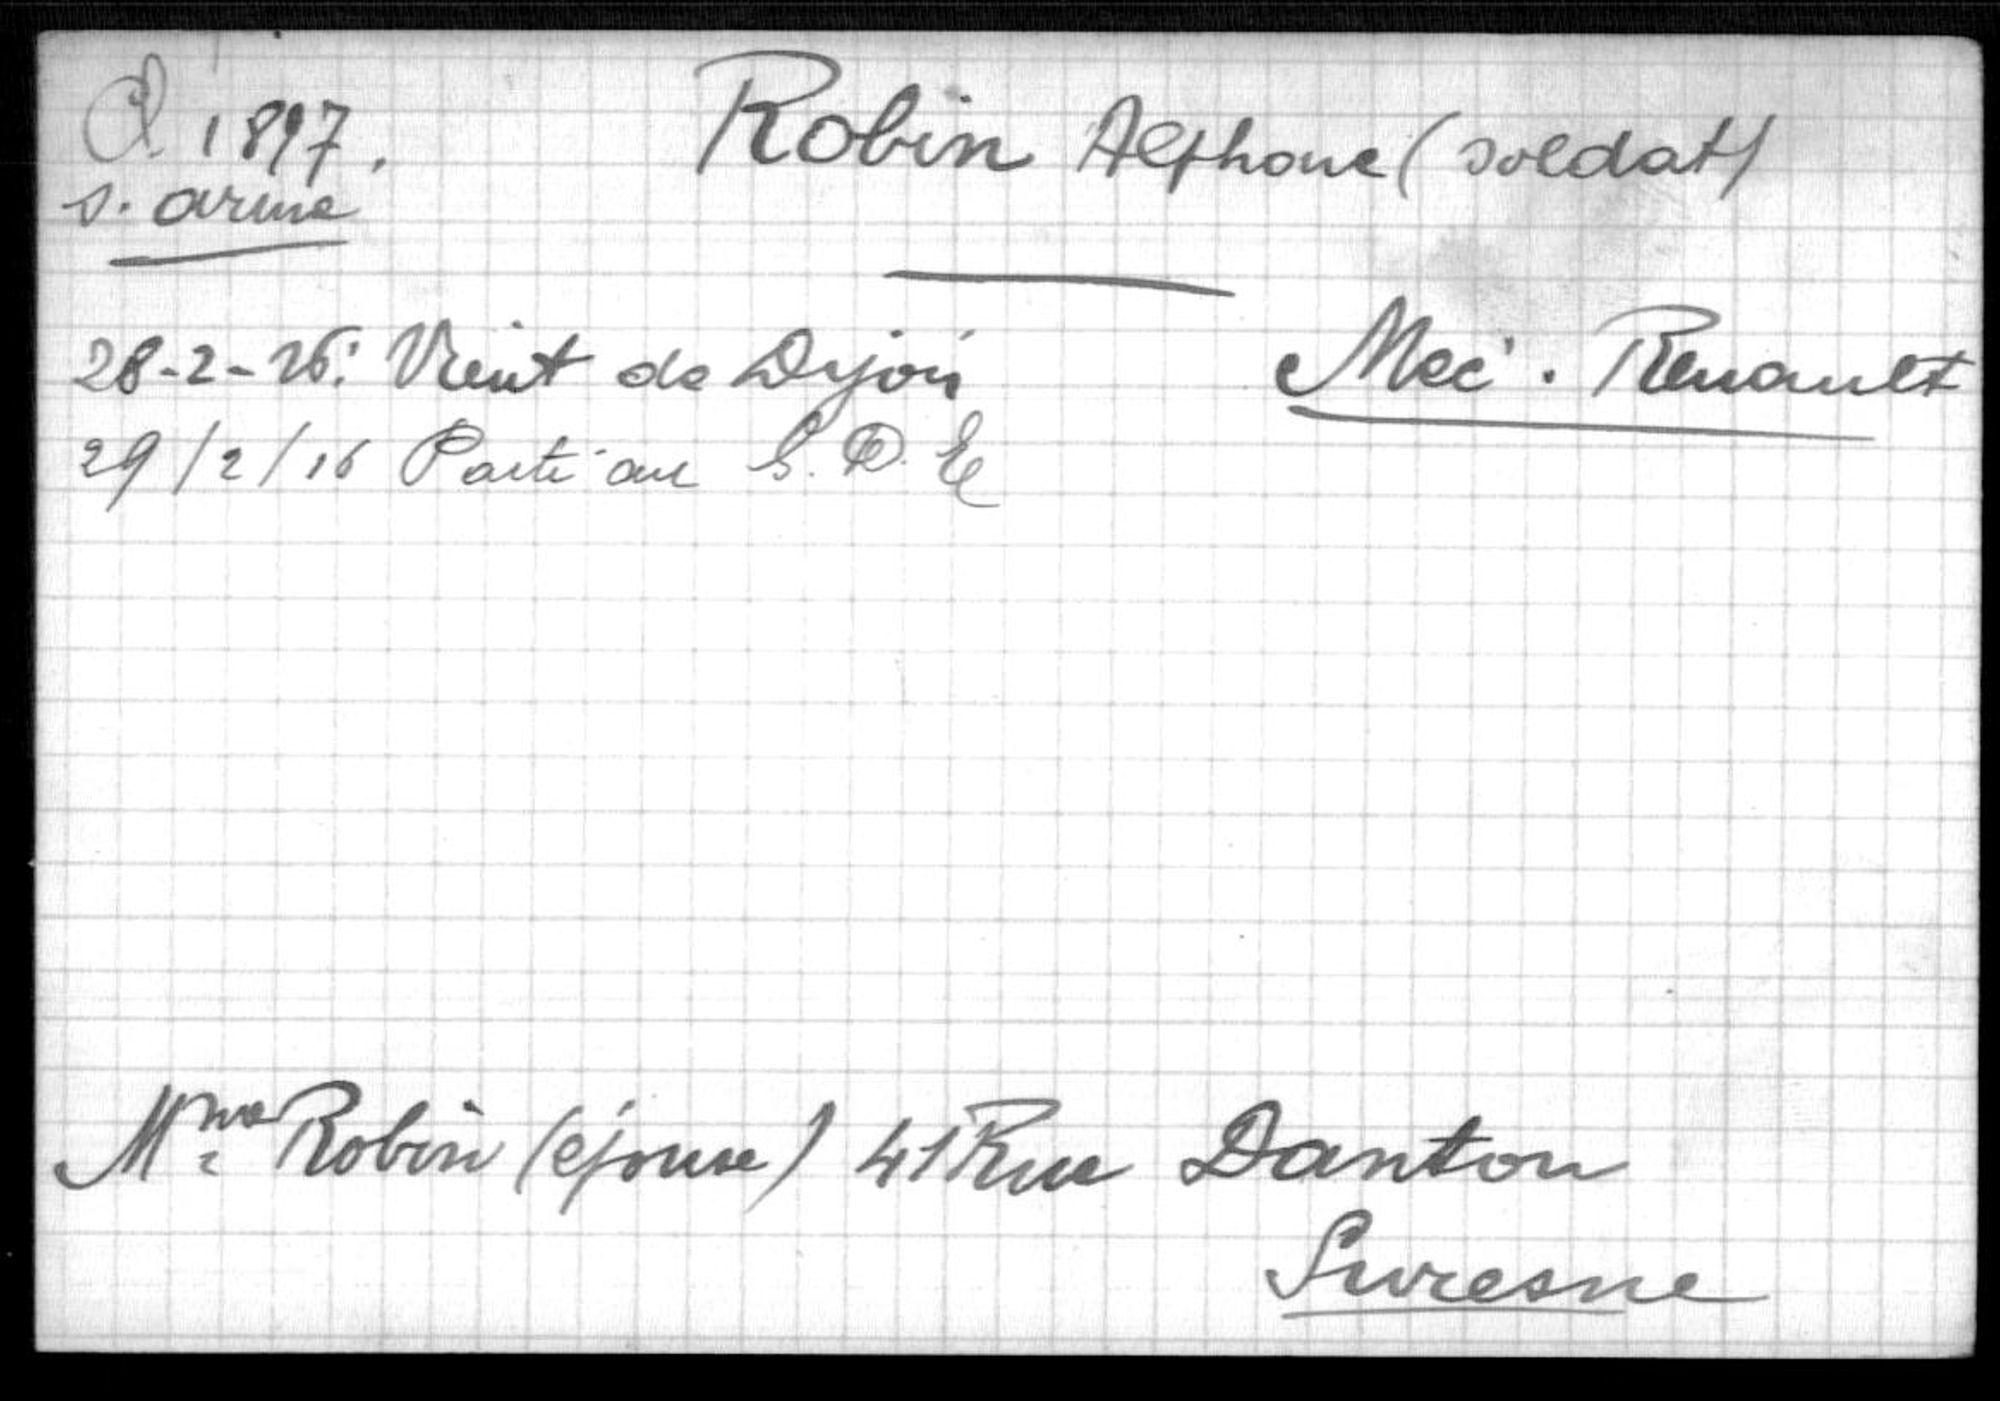 Cl 1897.
s. arme
Robin Alphonse (soldat)
28-2-16: Vient de Dijon
Méc. Renault
29/2/16 Parti au G.D.E
Mme Robin (épouse) 41 Rue Danton
Suresne